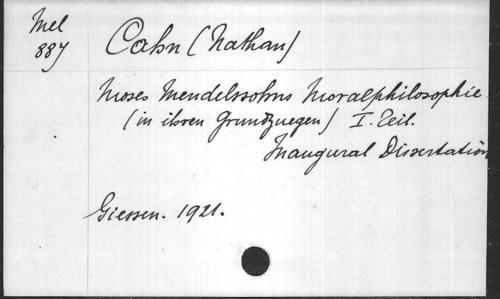 Mel
887
Cahn (Nathan)
Moses Mendelssohns Moralphilosophie
(in ihren Grundzuegen) I. Teil.
Inaugural Dissertation
Giessen. 1921.